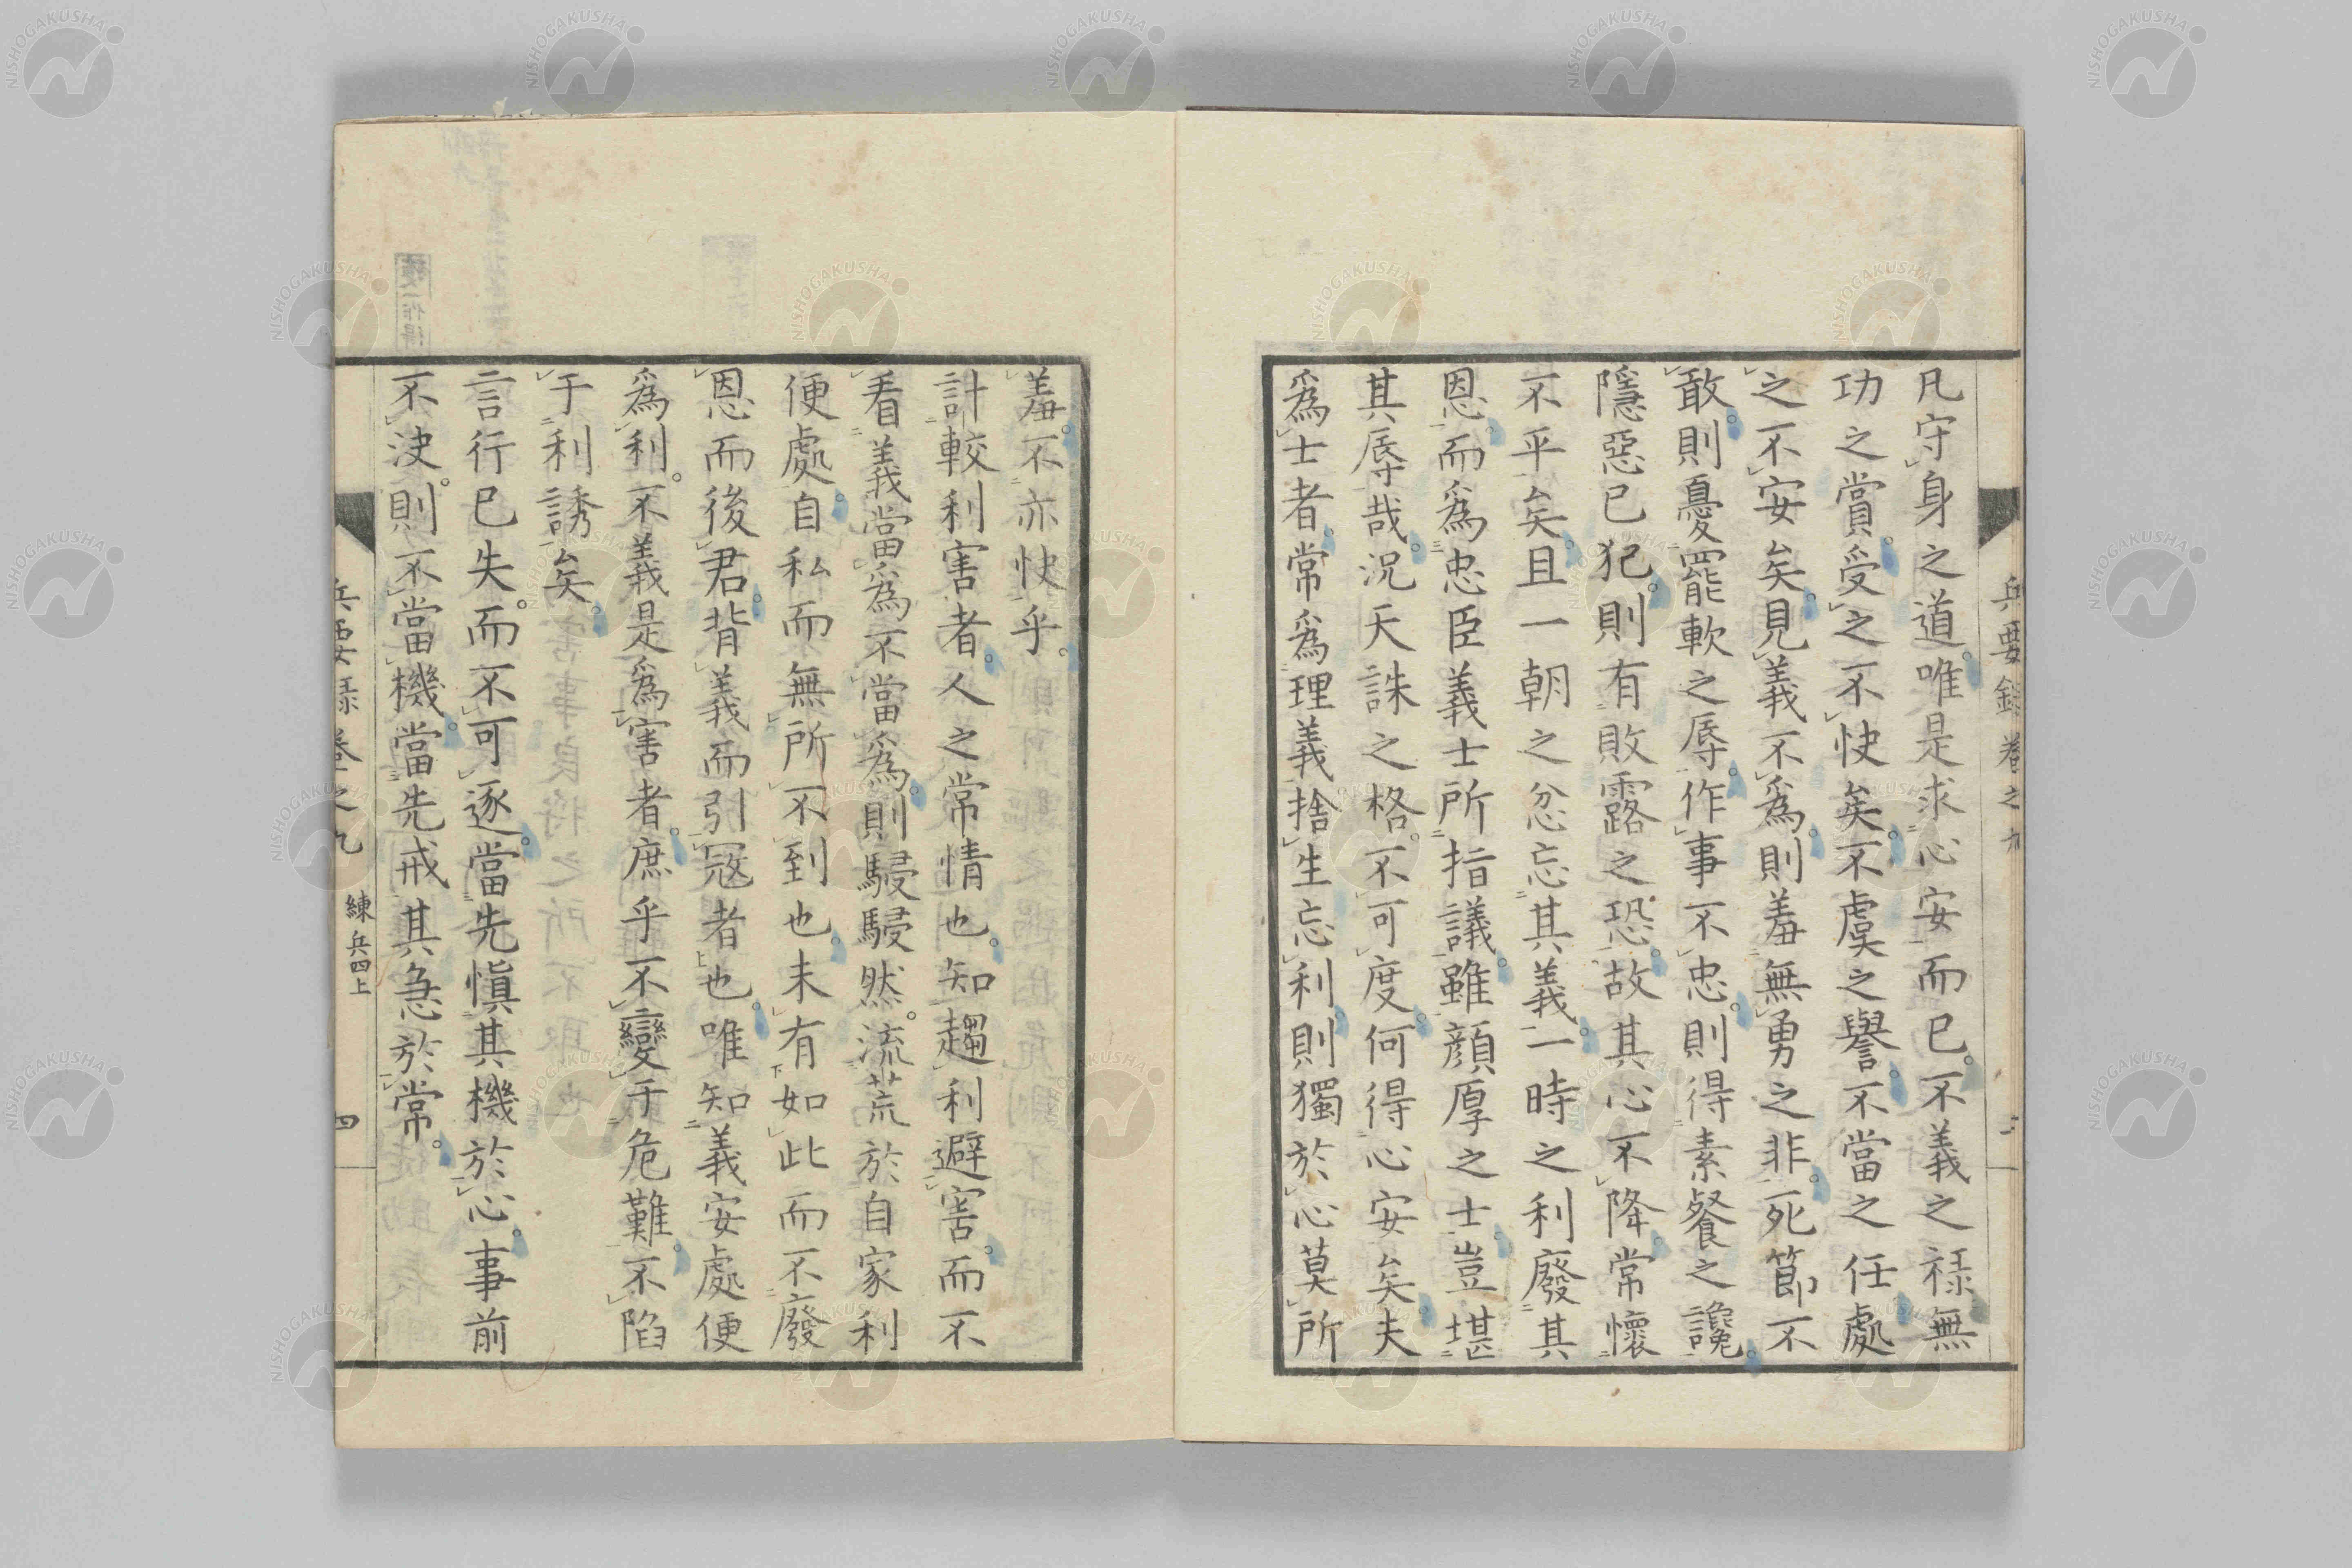 凡守身之道。唯是求心安而已。不義之祿無
功之賞。受之不快矣。不虞之譽。不當之任。處
之不安矣。見義不爲。則羞無勇之非。死節不
敢。則憂罷軟之辱。作事不忠。則得素餐之讒。
隱惡已犯。則有敗露之恐。故其心不降。常懷
不平矣。且一朝之忿忘其義。一時之利廢其
恩。而爲忠臣義士所指議。雖顏厚之士。豈堪
其辱哉。況天誅之格。不可度。何得心安矣。夫
爲士者。常爲理義捨生忘利。則獨於心莫所
羞。不亦快乎。
計較利害者。人之常情也。知趨利避害。而不
看義當爲不當爲。則駸駸然。流荒於自家利
便處。自私而無所不到也。未有如此而不廢
恩而後君。背義而引寇者也。唯知義安處便
爲利。不義是爲害者。庶乎不變于危難。不陷
于利誘矣。
言行已失。而不可逐。當先愼其機於心。事前
不決。則不當機。當先戒其急於常。
兵要錄卷之九
兵要錄卷之九 練兵四上 四
NISHOGAKUSHA